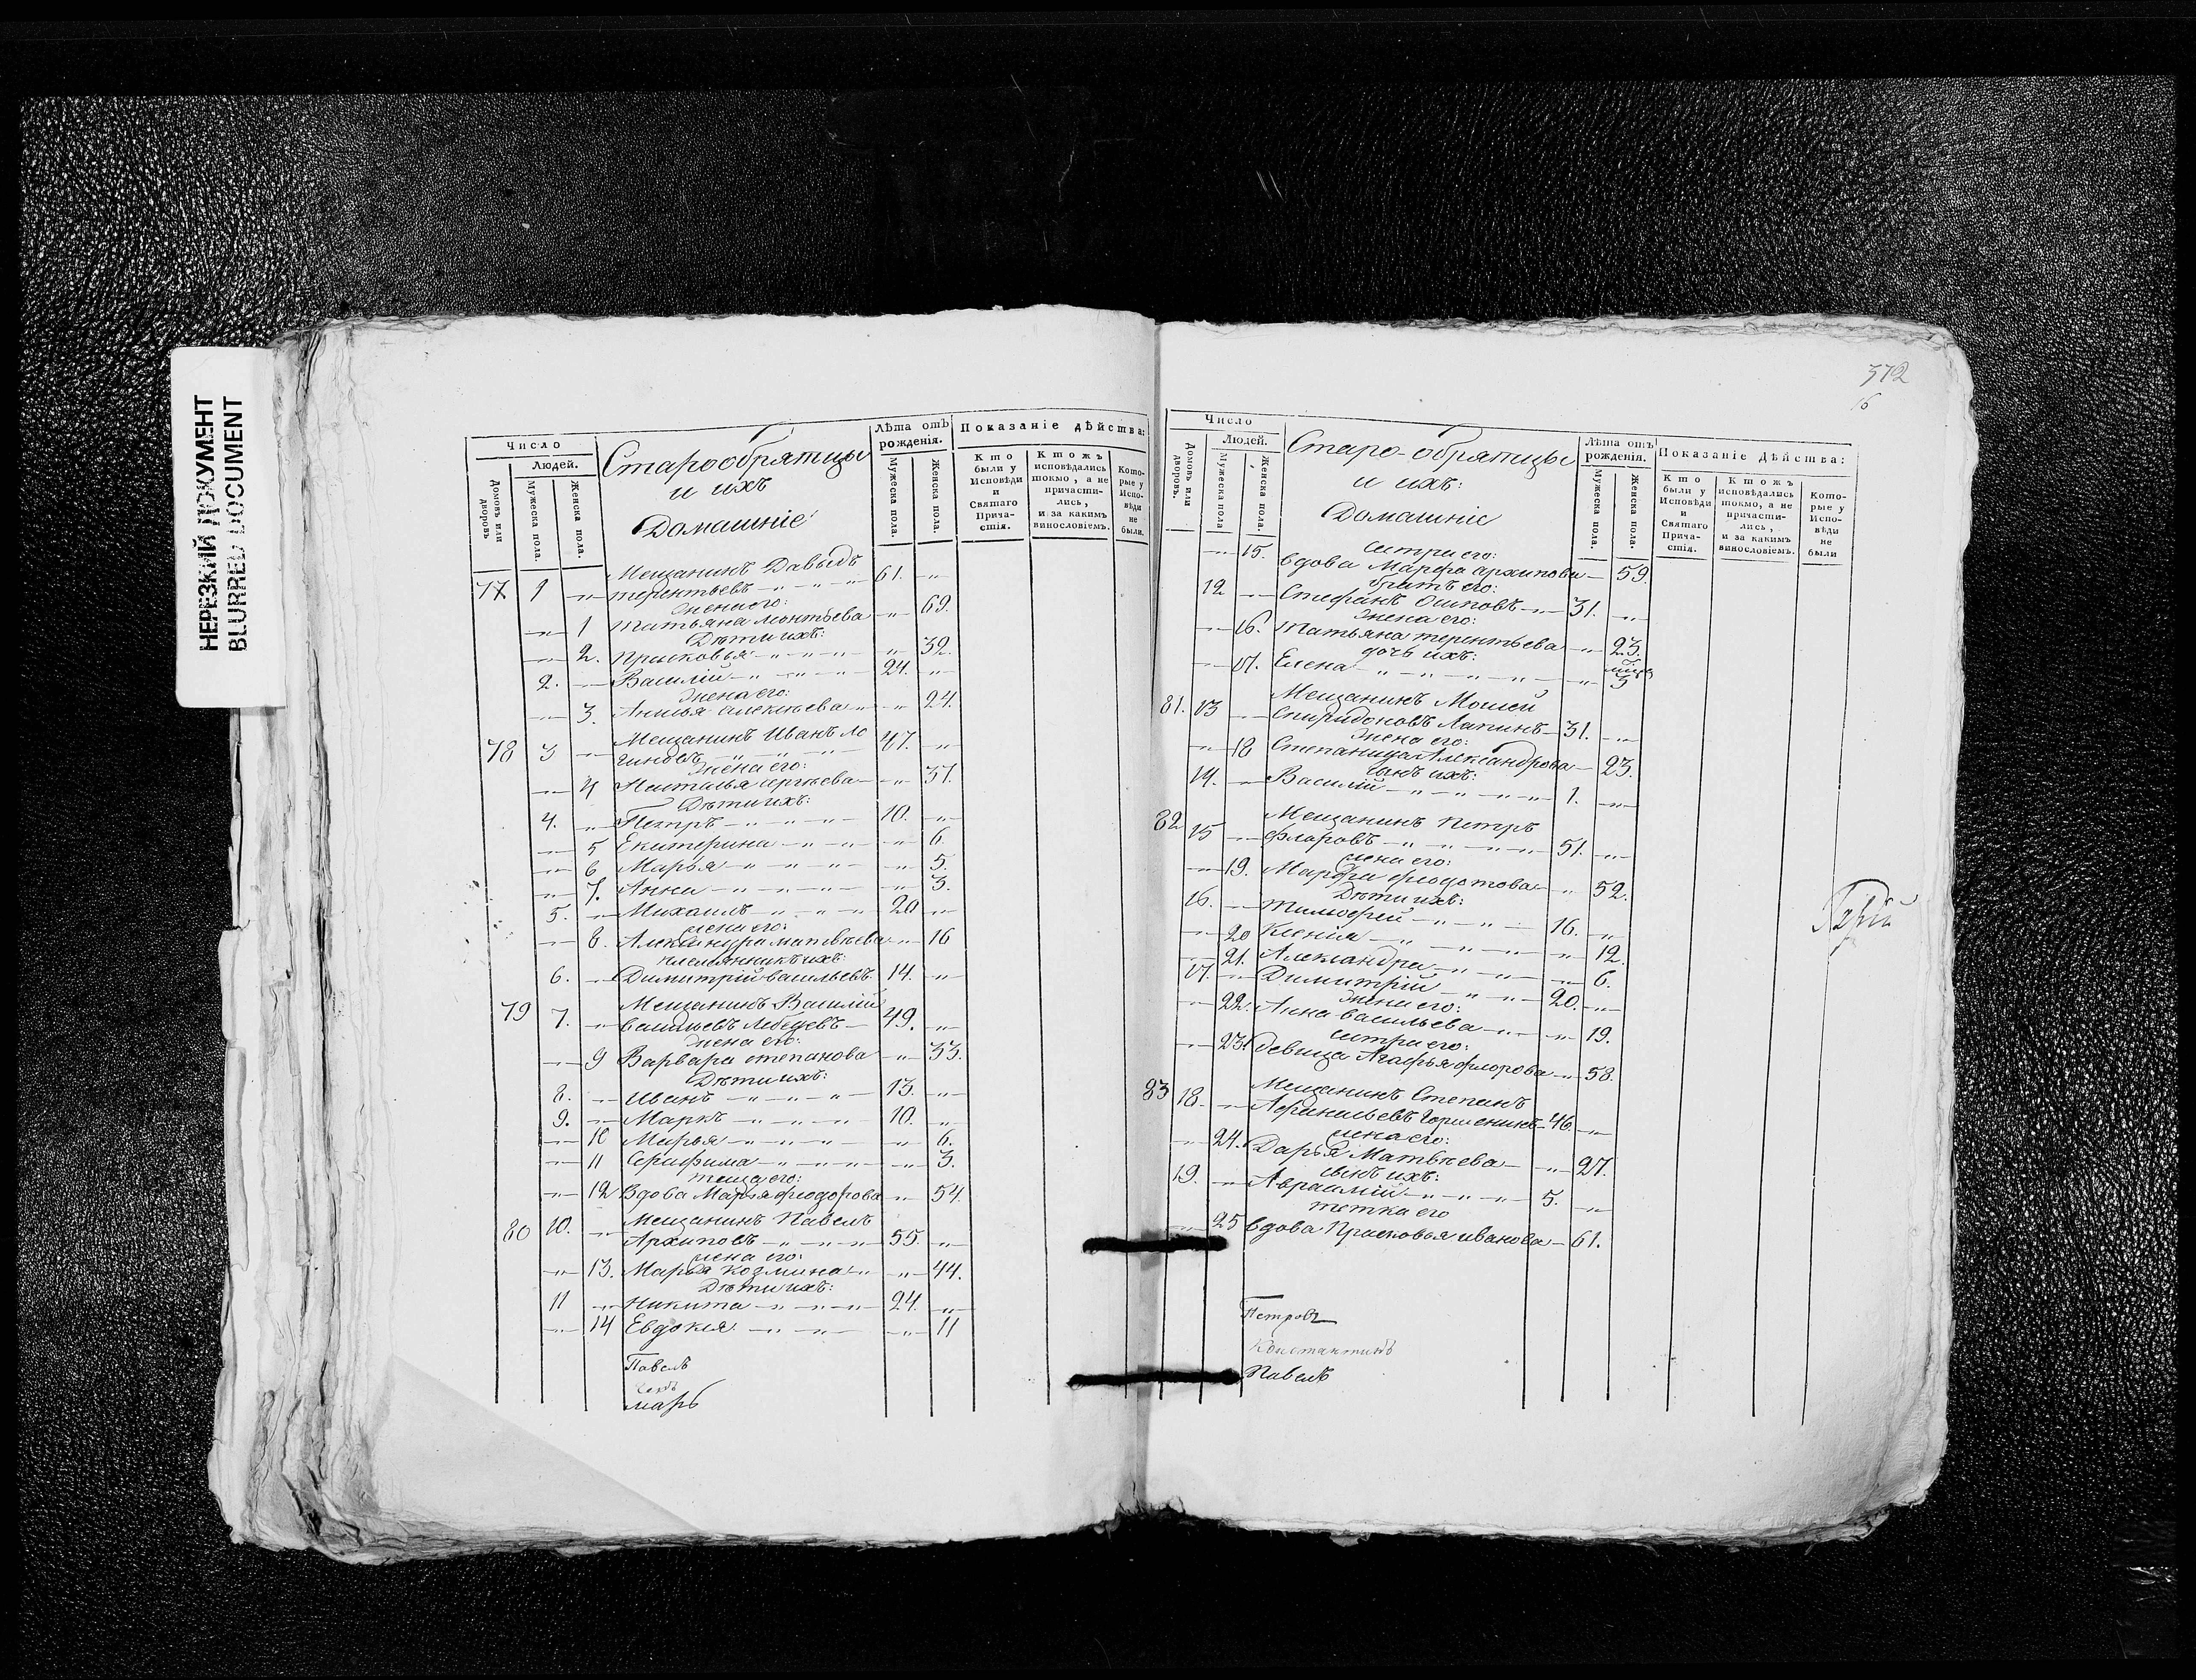 НЕРЕЗКИЙ ДОКУМЕНТ
BLURRED DOCUMENT
Число
Людей.
Домовъ или дворовъ
Мужеска пола.
Женска пола.
Старообрятцы
и ихъ
Домашніе
Лѣта отъ рожденія.
Мужеска пола.
Женска пола.
Показаніе дѣйства:
Кто были у Исповѣди и Святаго Прича-стія.
Ктожъ исповѣдались токмо, а не причасти-лись, и за какимъ винословіемъ.
Кото-рые у Испо-вѣди не были.
Мещанинъ Давыдъ
77 1 -„- терентьевъ 61. -„-
жена его:
-„- 1 Татьяна леонтьева -„- 69.
Дѣти ихъ:
-„- 2. Прасковья -„- 32.
2. -„- Василій 24. -„-
жена его:
-„- 3. алексѣева -„- 24.
Мещанинъ Иванъ Ло
78 3 -„- гиновъ 47. -„-
жена его:
-„- 4 Наталья сергѣева -„- 37.
Дѣти ихъ:
4. -„- Петръ 10. -„-
-„- 5 Екатерина -„- 6
-„- 6 Марья -„- 5.
-„- 7. Анна -„- 3.
5. -„- Михаилъ 20 -„-
жена его:
-„- 8. Александра матвѣева -„- 16
племянникъ ихъ:
6. -„- Димитрій васильевъ 14. -„-
Мещанинъ Василій
79 7. -„- васильевъ Лебедевъ 49. -„-
жена его:
-„- 9 Варвара степанова -„- 33.
Дѣти ихъ:
8. -„- Иванъ 13. -„-
9. -„- Маркъ 10. -„-
-„- 10 Марья -„- 6.
-„- 11 Серафима -„- 3.
теща его:
-„- 12 Вдова Марья феодорова -„- 54.
Мещанинъ Павелъ
80 10. -„- Архиповъ 55. -„-
жена его:
-„- 13. Марья козмина -„- 44.
Дѣти ихъ:
11 -„- Никита 24. -„-
-„- 14 Евдокія -„- 11
Павелъ
марь
372
16
Число
Людей.
Домовъ или дворовъ.
Мужеска пола
Женска пола.
Старо-обрятцы
и ихъ:
Домашніе
Лѣта отъ рожденія.
Мужеска пола.
Женска пола.
Показаніе дѣйства:
Кто были у Исповѣди и Святаго Прича-стія.
Ктожъ исповѣдались токмо, а не причасти-лись, и за какимъ винословіемъ.
Кото-рые у Испо-вѣди не были
сестра его:
-„- 15. вдова Марфа архипова 59.
братъ его:
12 -„- Стефанъ Осиповъ 31. -„-
жена его:
-„- 16. Татьяна терентьева -„- 23.
дочь ихъ:
-„- 17. Елена -„- 3
Мещанинъ Моисей
81. 13 -„- Спиридоновъ Лапинъ 31. -„-
жена его:
-„- 18 Степанида Александрова 23.
сынъ ихъ:
14. -„- Василій 1. -„-
Мещанинъ Петръ
82 15 -„- Фларовъ 51. -„-
жена его:
-„- 19. Марфа феодотова -„- 52.
Дѣти ихъ:
16. -„- Тимофей 16. -„-
-„- 20 Ксенія -„- 12.
-„- 21. Александра -„- 6.
17. -„- Димитрій 20. -„-
жена его:
-„- 22. Анна васильева -„- 19.
сестра его:
-„- 23. девица Агафья флорова -„- 58.
Мещанинъ Степанъ
83 18. -„- Афанасьевъ 46. -„-
жена его:
-„- 24. Дарья Матвѣева -„- 27.
сынъ ихъ:
19. -„- Авраамій 5. -„-
тетка его
-„- 25 вдова Прасковья иванова 61.
Петровъ
Константинъ
Павелъ